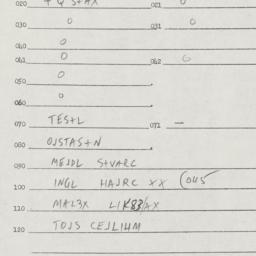 020 + Q S+AX 021 0
030 0 031 0
040 0
041 0 042 0
050 0
060 0
070 TES+L 071 —
080 OJSTAS+N
090 MEJDL S+VARC
100 INGL HAJRC XX (045
110 MAL3X
120 TOJS CEJLIUM